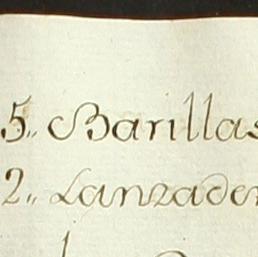 5,, Barillas
2,, Lanzader